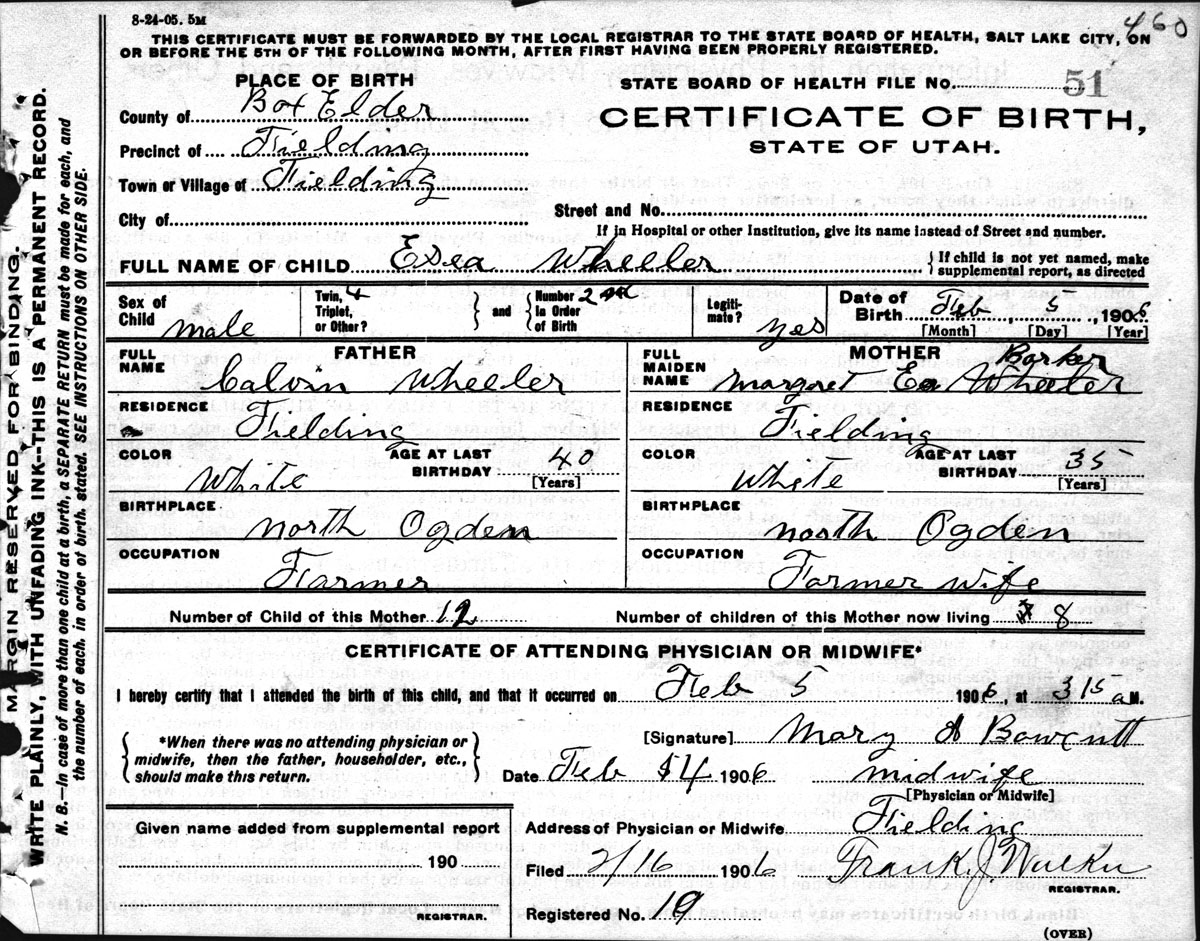 460
8-24-05. 5M
THIS CERTIFICATE MUST BE FORWARDED BY THE LOCAL REGISTRAR TO THE STATE BOARD OF HEALTH, SALT LAKE CITY, ON
OR BEFORE THE 5TH OF THE FOLLOWING MONTH, AFTER FIRST HAVING BEEN PROPERLY REGISTERED.
MARGIN RESERVED FOR BINDING.
WRITE PLAINLY, WITH UNFADING INK--THIS IS A PERMANENT RECORD.
N. B.--In case of more than one child at a birth, a SEPARATE RETURN must be made for each, and
the number of each. in order of birth. stated. SEE INSTRUCTIONS ON OTHER SIDE.
PLACE OF BIRTH
STATE BOARD OF HEALTH FILE No. 51
County of Box Elder
CERTIFICATE OF BIRTH,
Precinct of Fielding
STATE OF UTAH.
Town or Village of Fielding
City of
Street and No.
If in Hospital or other Institution, give its name instead of Street and number.
FULL NAME OF CHILD Wheeler
If child is not yet named, make
supplemental report, as directed
Sex of Child male
Twin, Triplet, or Other?
and
Number in Order of Birth 2nd
Legitimate? yes
Date of Birth Feb 5, 1906
[Month] [Day] [Year]
FATHER
MOTHER
FULL NAME Calvin Wheeler
FULL MAIDEN NAME Margaret Barker Wheeler
RESIDENCE Fielding
RESIDENCE Fielding
COLOR White AGE AT LAST BIRTHDAY 40 [Years]
COLOR White AGE AT LAST BIRTHDAY 35 [Years]
BIRTHPLACE north Ogden
BIRTHPLACE north Ogden
OCCUPATION Farmer
OCCUPATION Farmer wife
Number of Child of this Mother 12
Number of children of this Mother now living 8
CERTIFICATE OF ATTENDING PHYSICIAN OR MIDWIFE*
I hereby certify that I attended the birth of this child, and that it occurred on Feb 5 1906, at 315 a M.
*When there was no attending physician or
midwife, then the father, householder, etc.,
should make this return.
[Signature] Mary A Bowcutt
Date Feb 14 1906 midwife
[Physician or Midwife]
Given name added from supplemental report
190
REGISTRAR.
Address of Physician or Midwife Fielding
Filed 2/16 1906 Frank J
REGISTRAR.
Registered No. 19
(OVER)